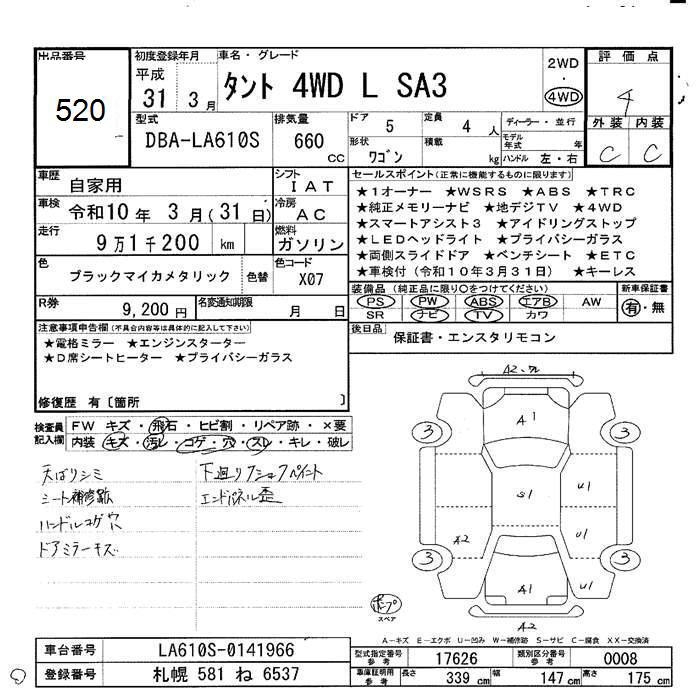 出品番号
520
初度登録年月
平成
31 3 月
車名・グレード
タント 4WD L SA3
2WD
・
4WD
評価点
4
外装 内装
C C
型式
DBA-LA610S
排気量
660
cc
ドア 5
定員 4 人
形状 ワゴン
積載 kg
ディーラー・並行
モデル
年式 年
ハンドル 左・右
車歴 自家用
シフト IAT
車検 令和10年 3月(31日)
冷房 AC
走行 9万1千200 km
燃料 ガソリン
色 ブラックマイカメタリック 色替
色コード X07
R券 9,200円
名変通知期限 月 日
セールスポイント(正常に機能するものに限り)
★1オーナー ★WSRS ★ABS ★TRC
★純正メモリーナビ ★地デジTV ★4WD
★スマートアシスト3 ★アイドリングストップ
★LEDヘッドライト ★プライバシーガラス
★両側スライドドア ★ベンチシート ★ETC
★車検付(令和10年3月31日) ★キーレス
装備品(純正品に限り○をつけてください)
PS PW ABS エアB AW
SR ナビ TV カワ
新車保証書
有・無
後日品
保証書・エンスタリモコン
注意事項申告欄(不具合内容等は具体的に記入して下さい)
★電格ミラー ★エンジンスターター
★D席シートヒーター ★プライバシーガラス
修復歴 有〔箇所 〕
検査員
記入欄
FW キズ・飛石・ヒビ割・リペア跡・×要
内装 キズ・汚レ・コゲ・穴・スレ・キレ・破レ
天ばりシミ
シート補修跡
ハンドルコゲ穴
ドアミラーキズ
下廻りクショクペイント
エンドパネル歪
A2・ワレ
A1
3 3
S1 U1
A2 U1
3 3
A1 U1
A2
スペア
A-キズ E-エクボ U-凹み W-補修跡 S-サビ C-腐食 XX-交換済
車台番号 LA610S-0141966
登録番号 札幌 581 ね 6537
型式指定番号
参考
17626
類別区分番号
参考
0008
車庫証明用
参考
長さ 339 cm 幅 147 cm 高さ 175 cm